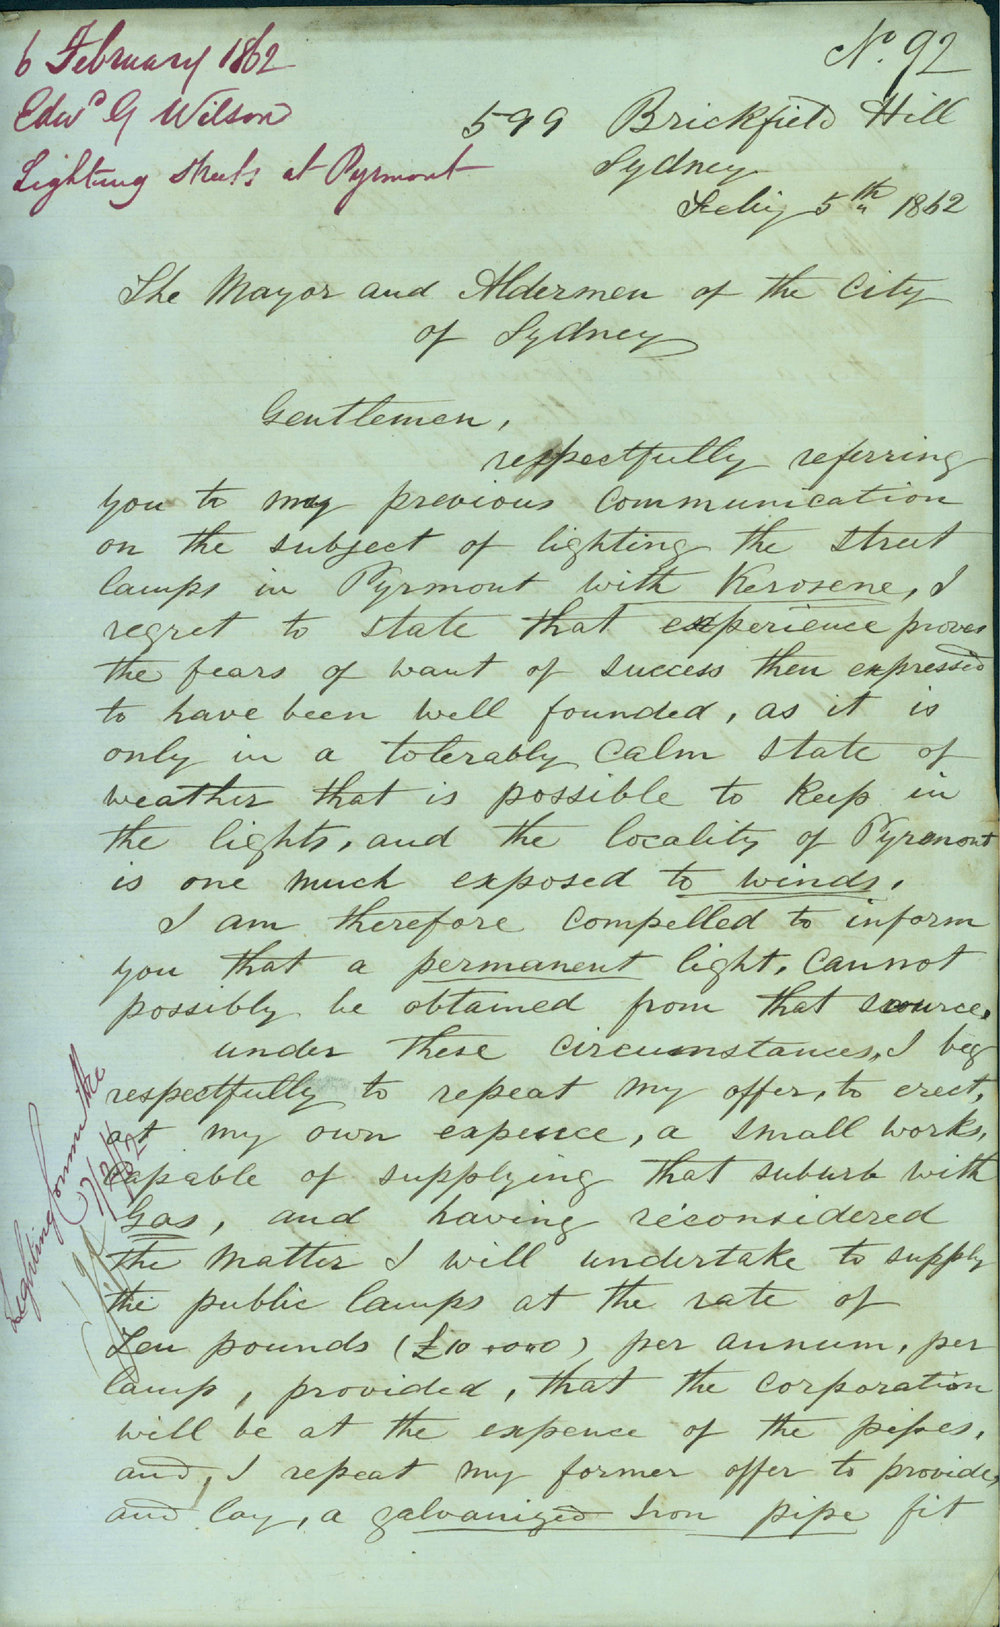 6 February 1862
Edwd G Wilson
Lighting streets at Pyrmont
No. 92
599 Brickfield Hill
Sydney
Feby 5th 1862
The Mayor and Aldermen of the City
of Sydney
Gentlemen,
respectfully referring
you to my previous communication
on the subject of lighting the street
lamps in Pyrmont with Kerosene, I
regret to state that experience proves
the fears of want of success then expressed
to have been well founded, as it is
only in a tolerably calm state of
weather that is possible to keep in
the lights, and the locality of Pyrmont
is one much exposed to winds.
I am therefore compelled to inform
you that a permanent light, cannot
possibly be obtained from that source.
under these circumstances, I beg
respectfully to repeat my offer, to erect,
at my own expence, a small works,
capable of supplying that suburb with
Gas, and having reconsidered
the matter I will undertake to supply
the public lamps at the rate of
Ten pounds (£10.0.0) per annum, per
lamp, provided, that the corporation
will be at the expence of the pipes,
and, I repeat my former offer to provide,
and lay, a galvanized Iron pipe fit
Lighting Committee